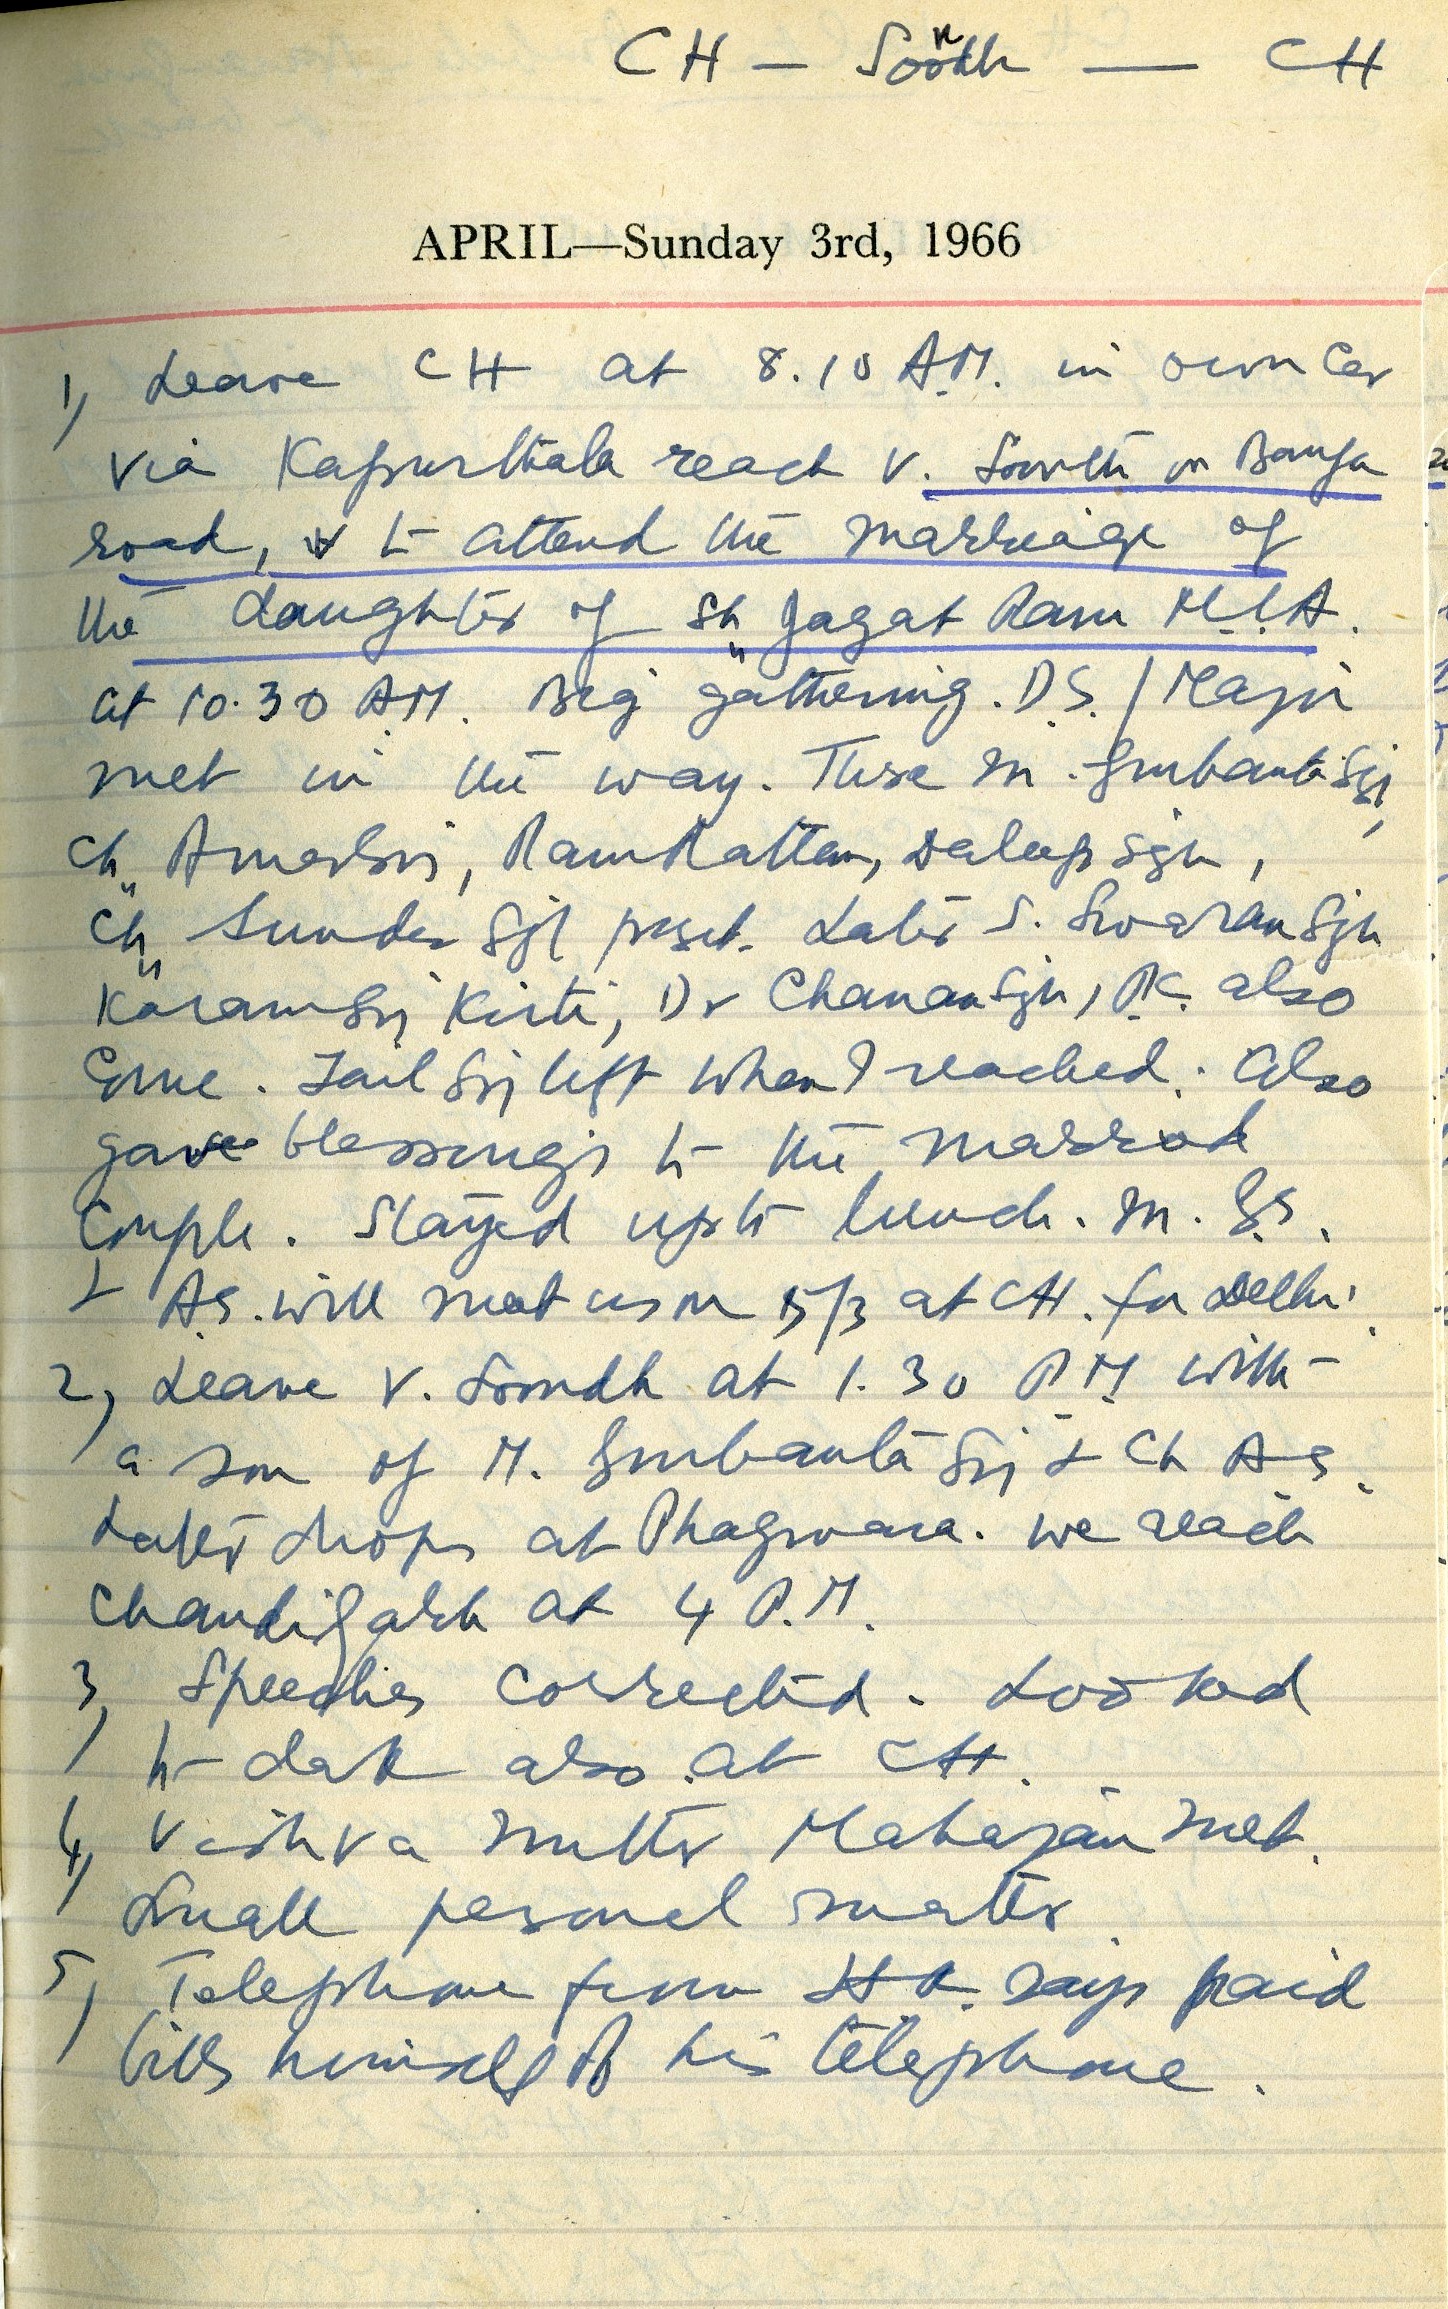 CH — Soondh — CH
APRIL—Sunday 3rd, 1966
1) Leave CH at 8.10 A.M. in own Car
via Kapurthala reach V. Soondh on Banga
road, to attend the marriage of
the daughter of Sh Jagat Ram M.L.A.
at 10.30 A.M. Big gathering. D.S. /
met in the way. There M. Gurbanta Sgj,
Ch Amar Sgj, Ram Rattan, Daleep Sgh,
Ch Sunder Sgh preset. Later S. Swaran Sgh
Karam Sgj Kirti, Dr Chanan Sgh, P.C. also
Come. Zail Sgj left when I reached. Also
gave blessings to the married
Couple. Stayed upto lunch. M. G.S.
& A.S. will meet us on at CH. for Delhi.
2) Leave V. Soondh at 1.30 P.M with
a son of M. Gurbanta Sgj & Ch A S.
Later drops at Phagwara. We reach
Chandigarh at 4 P.M.
3) Speeches Corrected. Looked
to dak also at CH.
4) Vishva Mahajan met.
Small personel matter
5) Telephone from says paid
bills himself of his telephone.